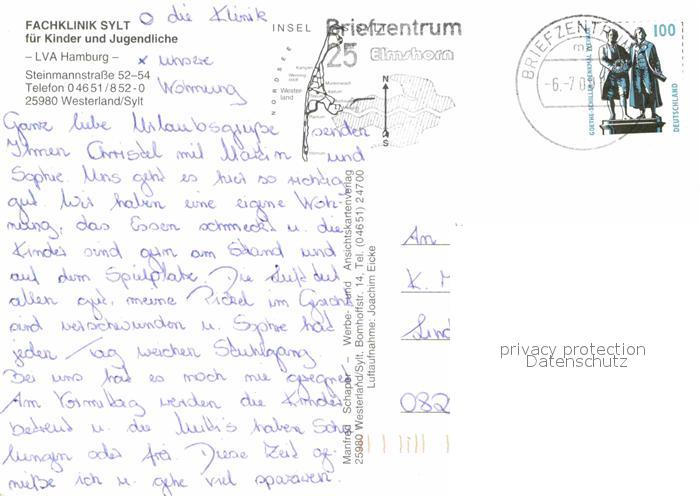 O die Klinik
FACHKLINIK SYLT
für Kinder und Jugendliche
– LVA Hamburg –
Steinmannstraße 52–54
Telefon 0 46 51 / 8 52 - 0
25980 Westerland/Sylt
x unsere
Wohnung
INSEL
NORDSEE
Westerland
N
S
Briefzentrum
25 Elmshorn
BRIEFZENTRUM
-6.-7.0
100
GOETHE-SCHILLER-DENKMAL WEIMAR
DEUTSCHLAND
Ganz liebe Urlaubsgrüße senden
Ihnen Christel mit Martin und
Sophie. Uns geht es hier so richtig
gut. Wir haben eine eigene Woh-
nung, das Essen schmeckt u. die
Kinder sind gern am Strand und
auf dem Spielplatz. Die Luft tut
allen gut, meine Pickel im Gesicht
sind verschwunden u. Sophie hat
jeden Tag weichen Stuhlgang.
Bei uns hat es noch nie geregnet
Am Vormittag werden die Kinder
betreut u. die Muttis haben Schu-
lungen oder frei. Diese Zeit ge-
nieße ich u. gehe viel spazieren.
Manfred Schaper – Werbe- und Ansichtskartenverlag
25980 Westerland/Sylt, Bomhoffstr. 14, Tel. (0 46 51) 2 47 00
Luftaufnahme: Joachim Eicke
An
K.
Lind
082
privacy protection
Datenschutz